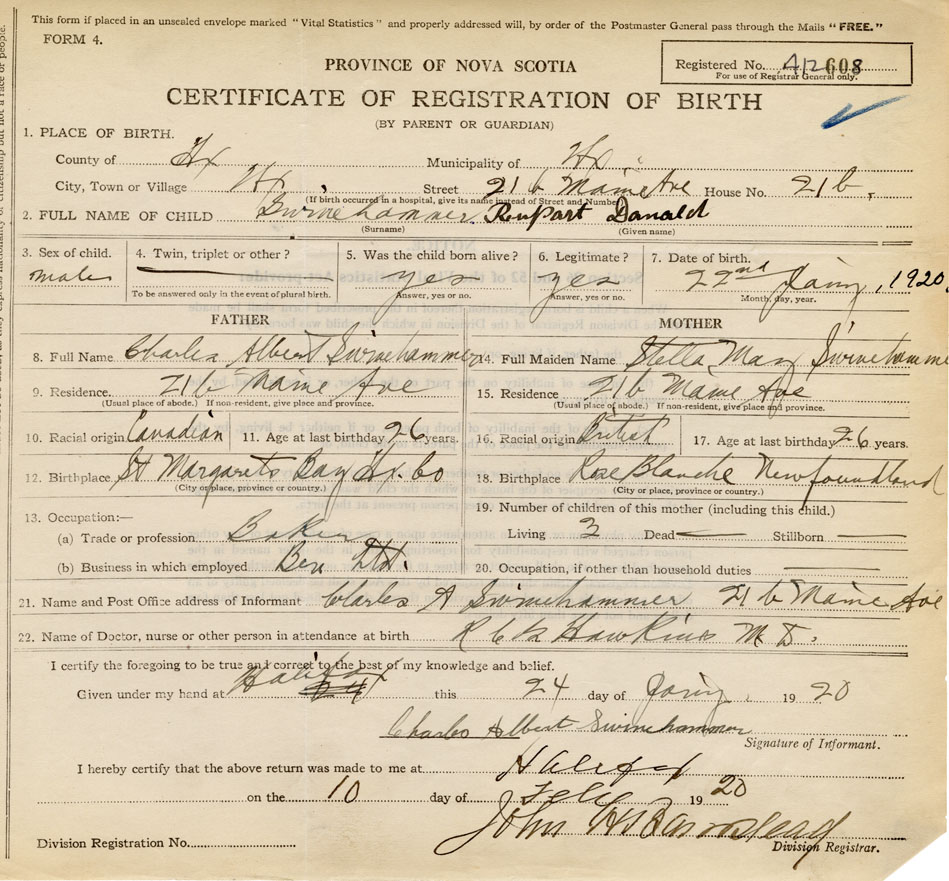 This form if placed in an unsealed envelope marked "Vital Statistics" and properly addressed will, by order of the Postmaster General pass through the Mails "FREE."
FORM 4.
Registered No. 608
For use of Registrar General only.
PROVINCE OF NOVA SCOTIA
CERTIFICATE OF REGISTRATION OF BIRTH
(BY PARENT OR GUARDIAN)
1. PLACE OF BIRTH.
County of Hx Municipality of Hx
City, Town or Village Hx Street 21 b Maine Ave House No. 21 b,
(If birth occurred in a hospital, give its name instead of Street and Number)
2. FULL NAME OF CHILD Swinehammer Donald
(Surname) (Given name)
3. Sex of child. 4. Twin, triplet or other? 5. Was the child born alive? 6. Legitimate? 7. Date of birth.
male yes yes 22nd Jany, 1920
To be answered only in the event of plural birth. Answer, yes or no. Answer, yes or no. Month, day, year.
FATHER MOTHER
8. Full Name Charles Albert Swinehammer 14. Full Maiden Name Stella May Swinehamme
9. Residence. 21 b Maine Ave 15. Residence 21 b Maine Ave
(Usual place of abode.) If non-resident, give place and province. (Usual place of abode.) If non-resident, give place and province.
10. Racial origin Canadian 11. Age at last birthday 26 years. 16. Racial origin British 17. Age at last birthday 26 years.
12. Birthplace St Margarets Bay Hx. Co 18. Birthplace Rose Blanche Newfoundland
(City or place, province or country.) (City or place, province or country.)
19. Number of children of this mother (including this child.)
13. Occupation:—
(a) Trade or profession Baker Living Dead Stillborn
(b) Business in which employed Ben Ltd. 20. Occupation, if other than household duties
21. Name and Post Office address of Informant Charles A Swinehammer 21 b Maine Ave
22. Name of Doctor, nurse or other person in attendance at birth Hawkins M D.
I certify the foregoing to be true and correct to the best of my knowledge and belief.
Given under my hand at Halifax this 24 day of Jany 1920
Charles Albert Swinehammer
Signature of Informant.
I hereby certify that the above return was made to me at Halifax
on the 10 day of Feby 1920
John
Division Registration No. Division Registrar.